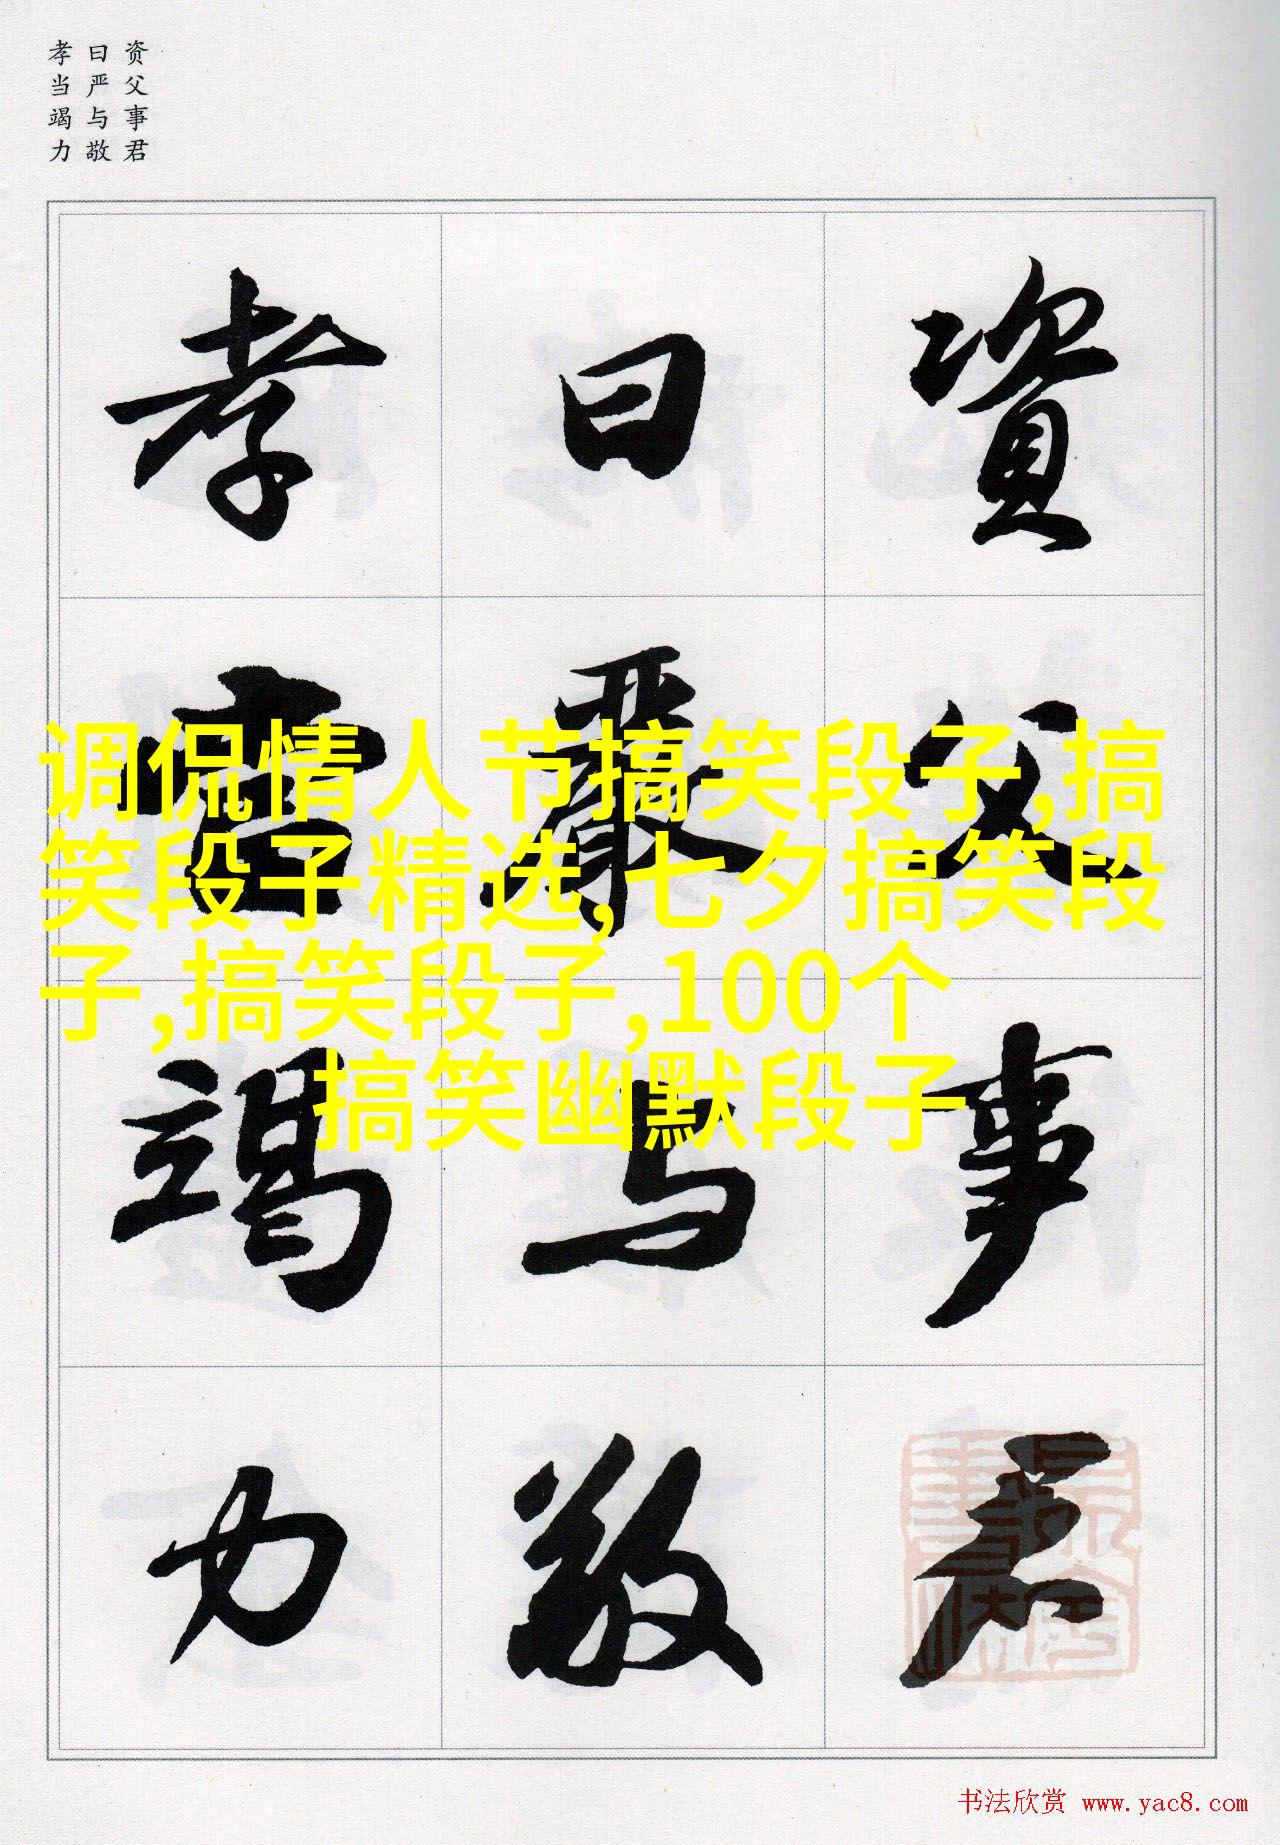 资父事君
曰严与敬
孝当竭力
資父事君
曰嚴与敬
孝當竭力
调侃情人节搞笑段子,搞
笑段子精选,七夕搞笑段
子,搞笑段子,100个
搞笑幽默段子
书法欣赏 www.yac8.com